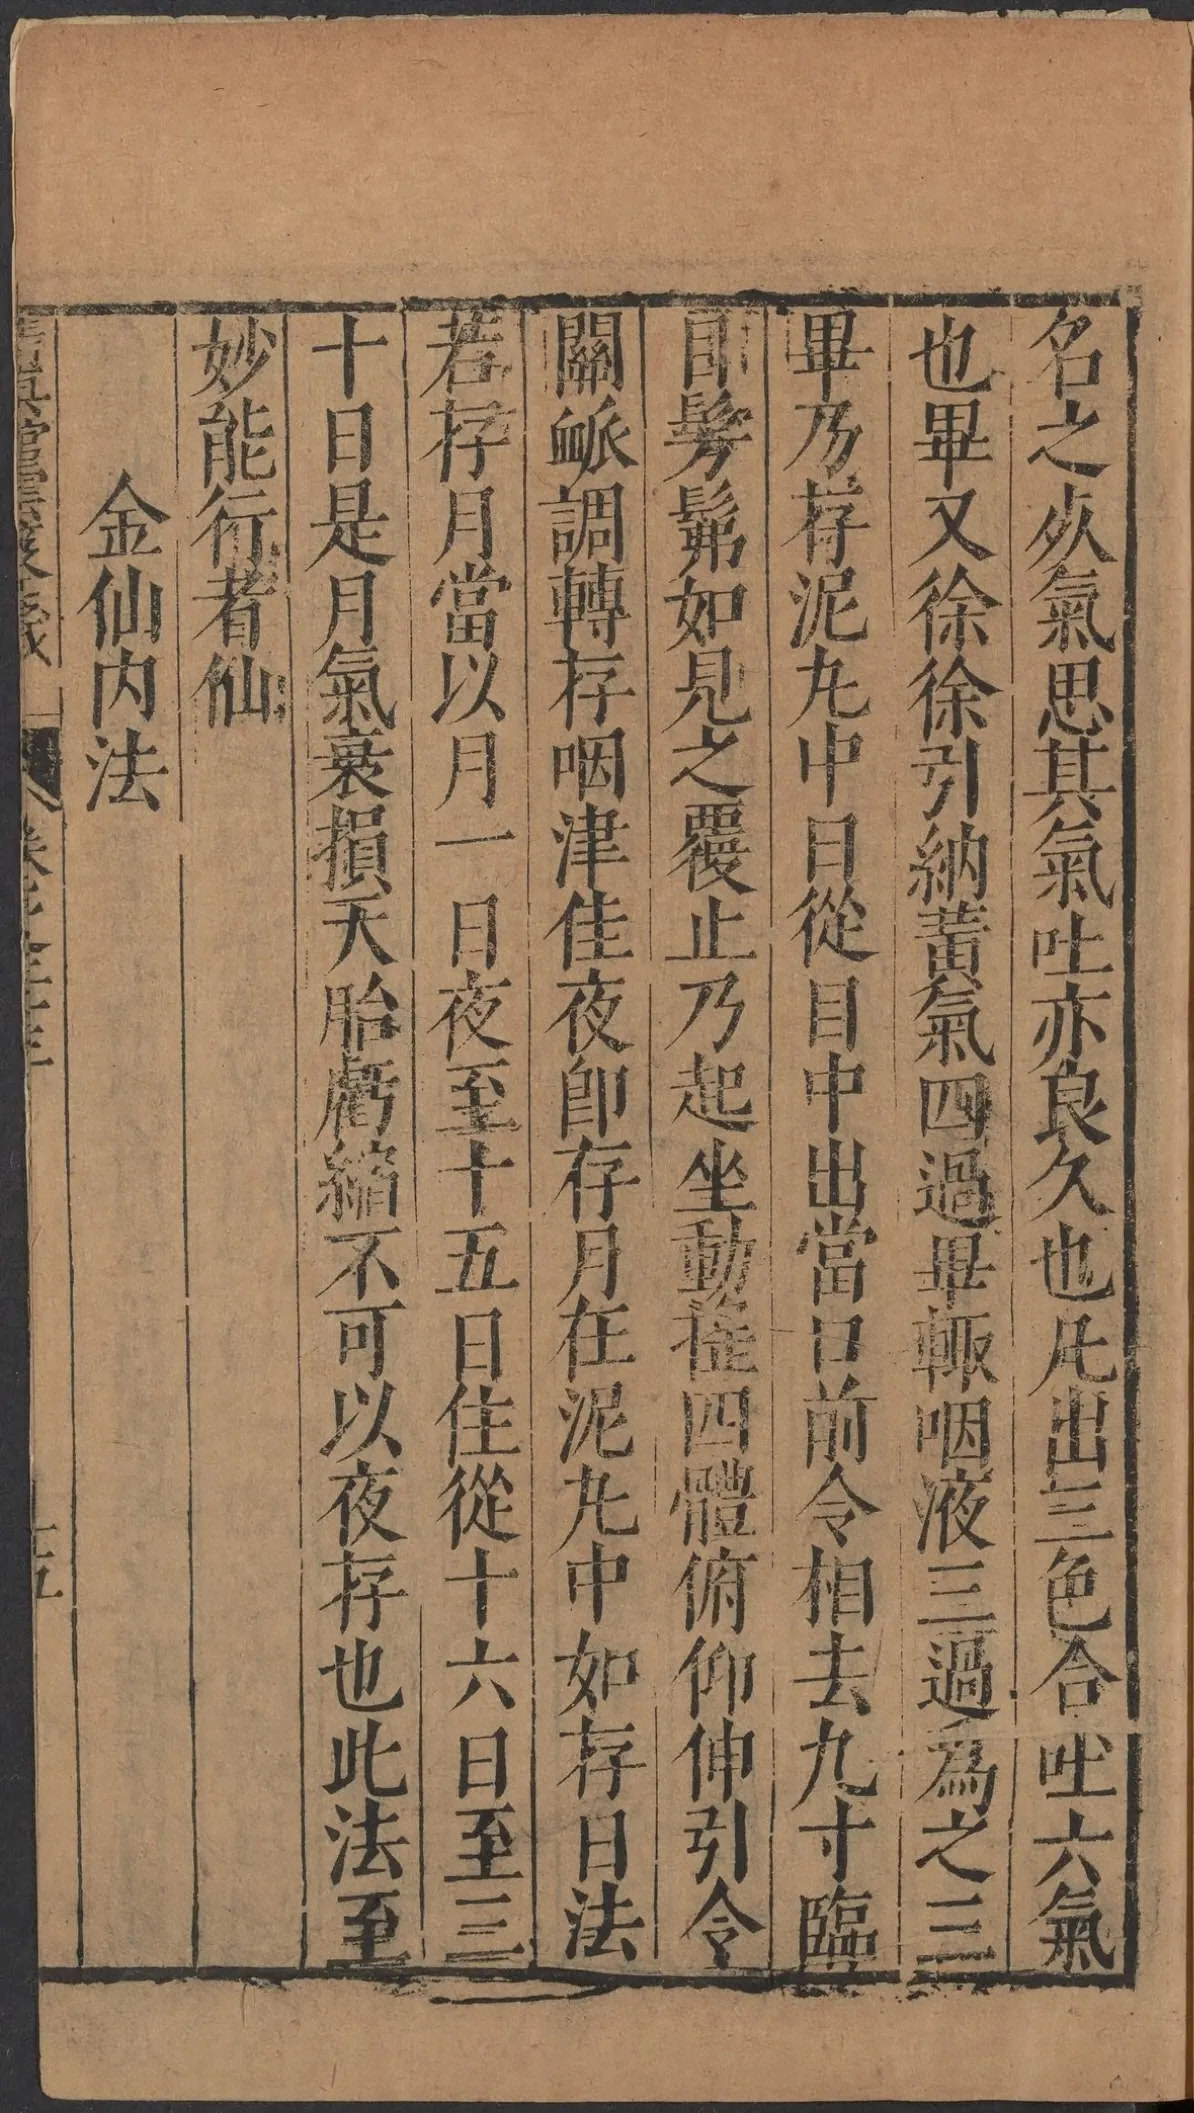 名之死氣思其氣吐亦良久也凡出三色合吐六氣
也畢又徐徐引納黃氣四過畢輙咽液三過為之三
畢乃存泥丸中日從目中出當口前令相去九寸臨
目髣髴如見之覆止乃起坐動摇四體俯仰伸引令
關䘑調轉存咽津佳夜卽存月在泥丸中如存日法
若存月當以月一日夜至十五日住從十六日至三
十日是月氣衰損天胎虧縮不可以夜存也此法至
妙能行者仙
金仙内法
十五